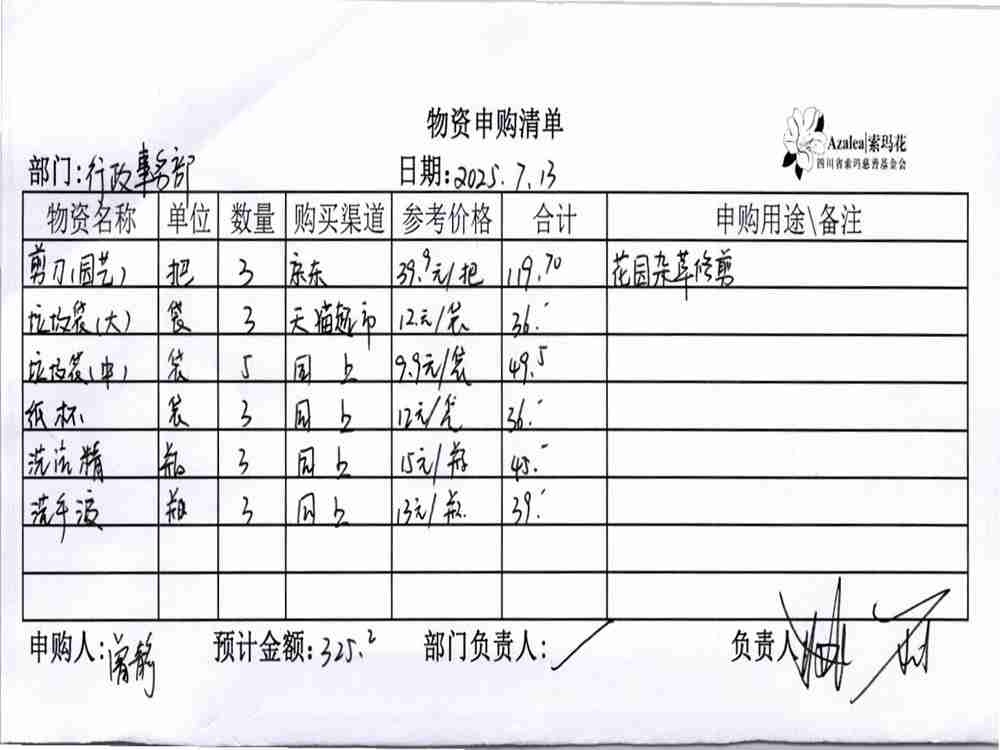 物资申购清单
Azalea|索玛花
四川省索玛慈善基金会
部门:行政事务部 日期:2025.7.13
物资名称 单位 数量 购买渠道 参考价格 合计 申购用途\备注
剪刀(园艺) 把 3 京东 39.9元/把 119.70 花园杂草修剪
垃圾袋(大) 袋 3 天猫超市 12元/袋 36.-
垃圾袋(中) 袋 5 同上 9.9元/袋 49.5
纸杯 袋 3 同上 12元/袋 36.-
洗洁精 瓶 3 同上 15元/瓶 45.-
洗手液 瓶 3 同上 13元/瓶 39.-
申购人: 预计金额:325.2 部门负责人: 负责人